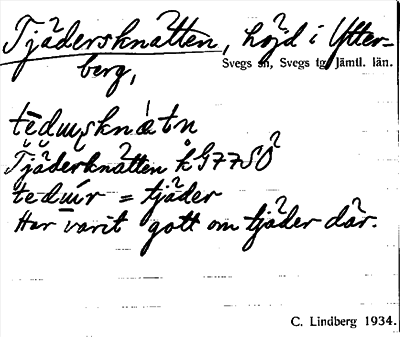 Tjädersknätten, höjd i Ytter-
berg,
Svegs sn, Svegs tg, Jämtl. län.
Tjäderknätten
= tjäder
Har varit gott om tjäder där.
C. Lindberg 1934.